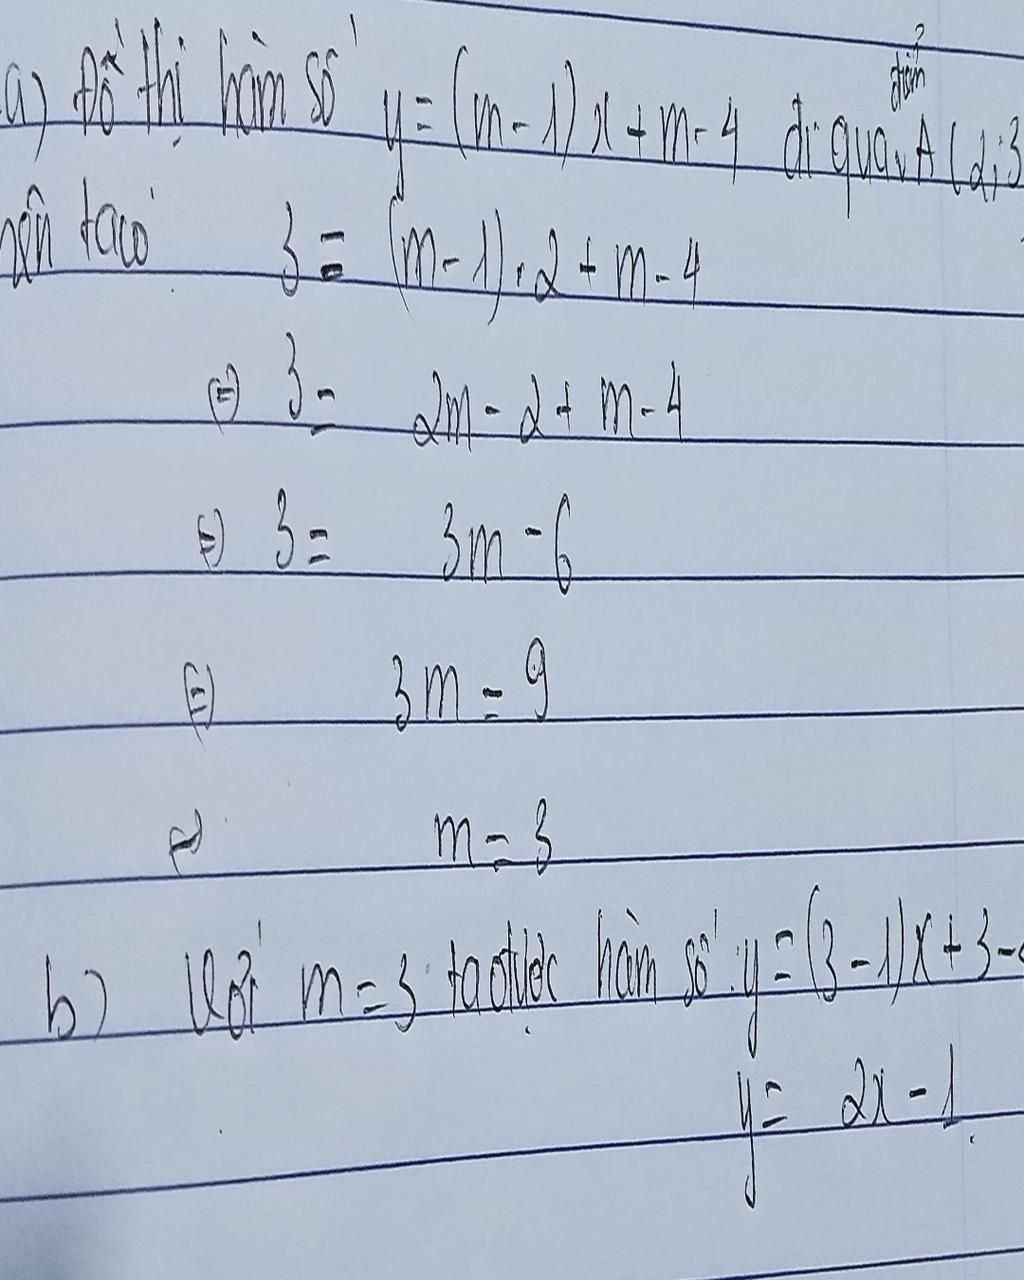 a) Đồ thị hàm số y = (m - 1) x + m - 4 đi qua điểm A (2; 3
nên ta có 3 = (m - 1) . 2 + m - 4
⇔ 3 = 2m - 2 + m - 4
⇔ 3 = 3m - 6
⇔ 3m = 9
⇔ m = 3
b) Với m = 3 ta được hàm số : y = (3 - 1) x + 3 -
y = 2x - 1.